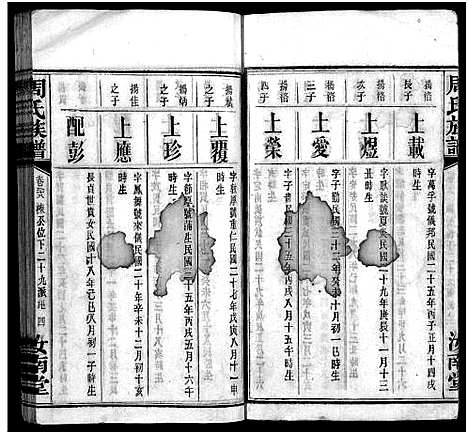 周氏族譜
汝南堂
揚格長子
上載
字萬孚號儀邦民國二十五年丙子正月十四戌時生
揚格次子
上煜
字耿談號夏炎民國二十九年庚辰十一月十三丑時生
揚格三子
上愛
字子勤民國二十二年癸酉十月初一巳時生
揚格四子
上榮
字子書民國三十五年丙戌八月十五子時生
揚城之子
上覆
字乾厚號重仁民國二十七年戊寅八月十一申時生
揚炳之子
上珍
字節厚號滿生民國三十五年丙戌五月十六午時生
揚佳之子
上應
字鳳舞號來儀民國二十年辛未十二月初十亥時生
配彭
長貞世貴女民國十八年己巳八月初一子時生
周氏族譜
卷三八
棟公位下二十九派
四
汝南堂